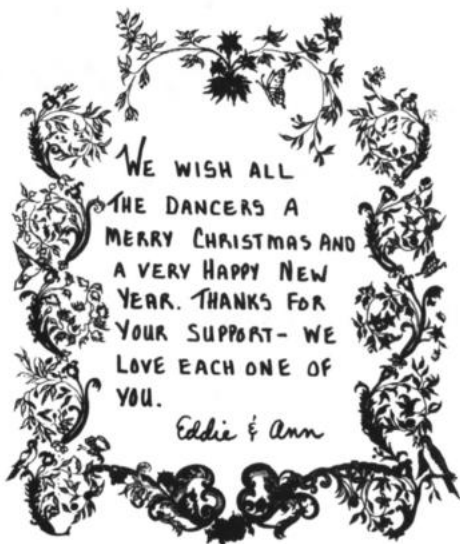 WE WISH ALL
THE DANCERS A
MERRY CHRISTMAS AND
A VERY HAPPY NEW
YEAR. THANKS FOR
YOUR SUPPORT- WE
LOVE EACH ONE OF
YOU.
Eddie & Ann